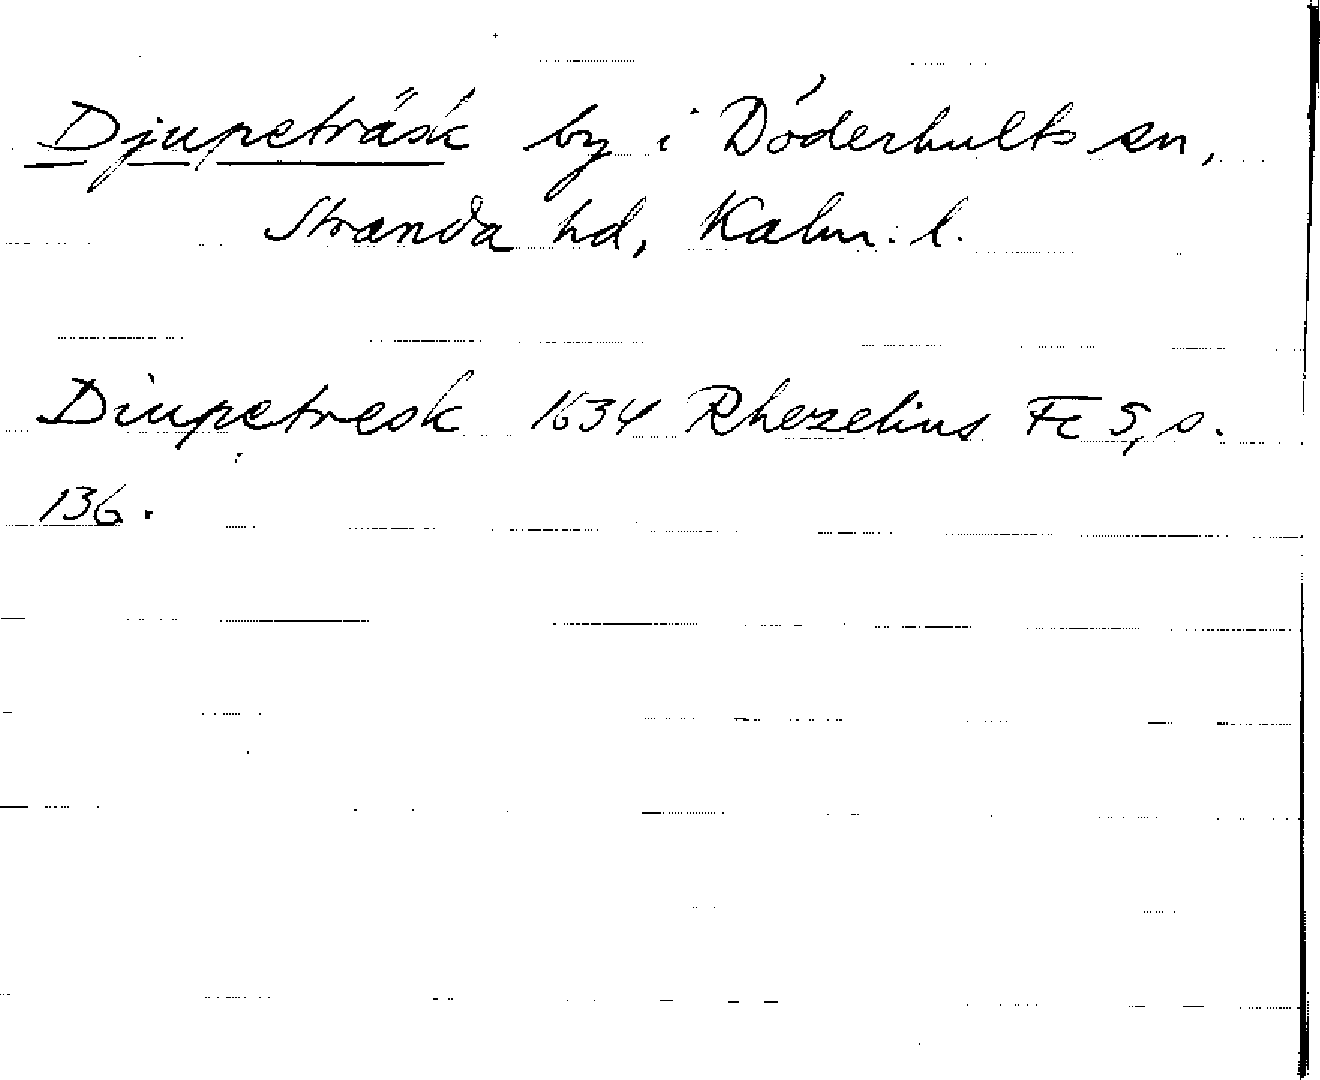 Djupeträsk by i Döderhults sn,
Stranda hd, Kalm. l.
Diupetresk 1634 Rhezelius Fc 5, s.
136.